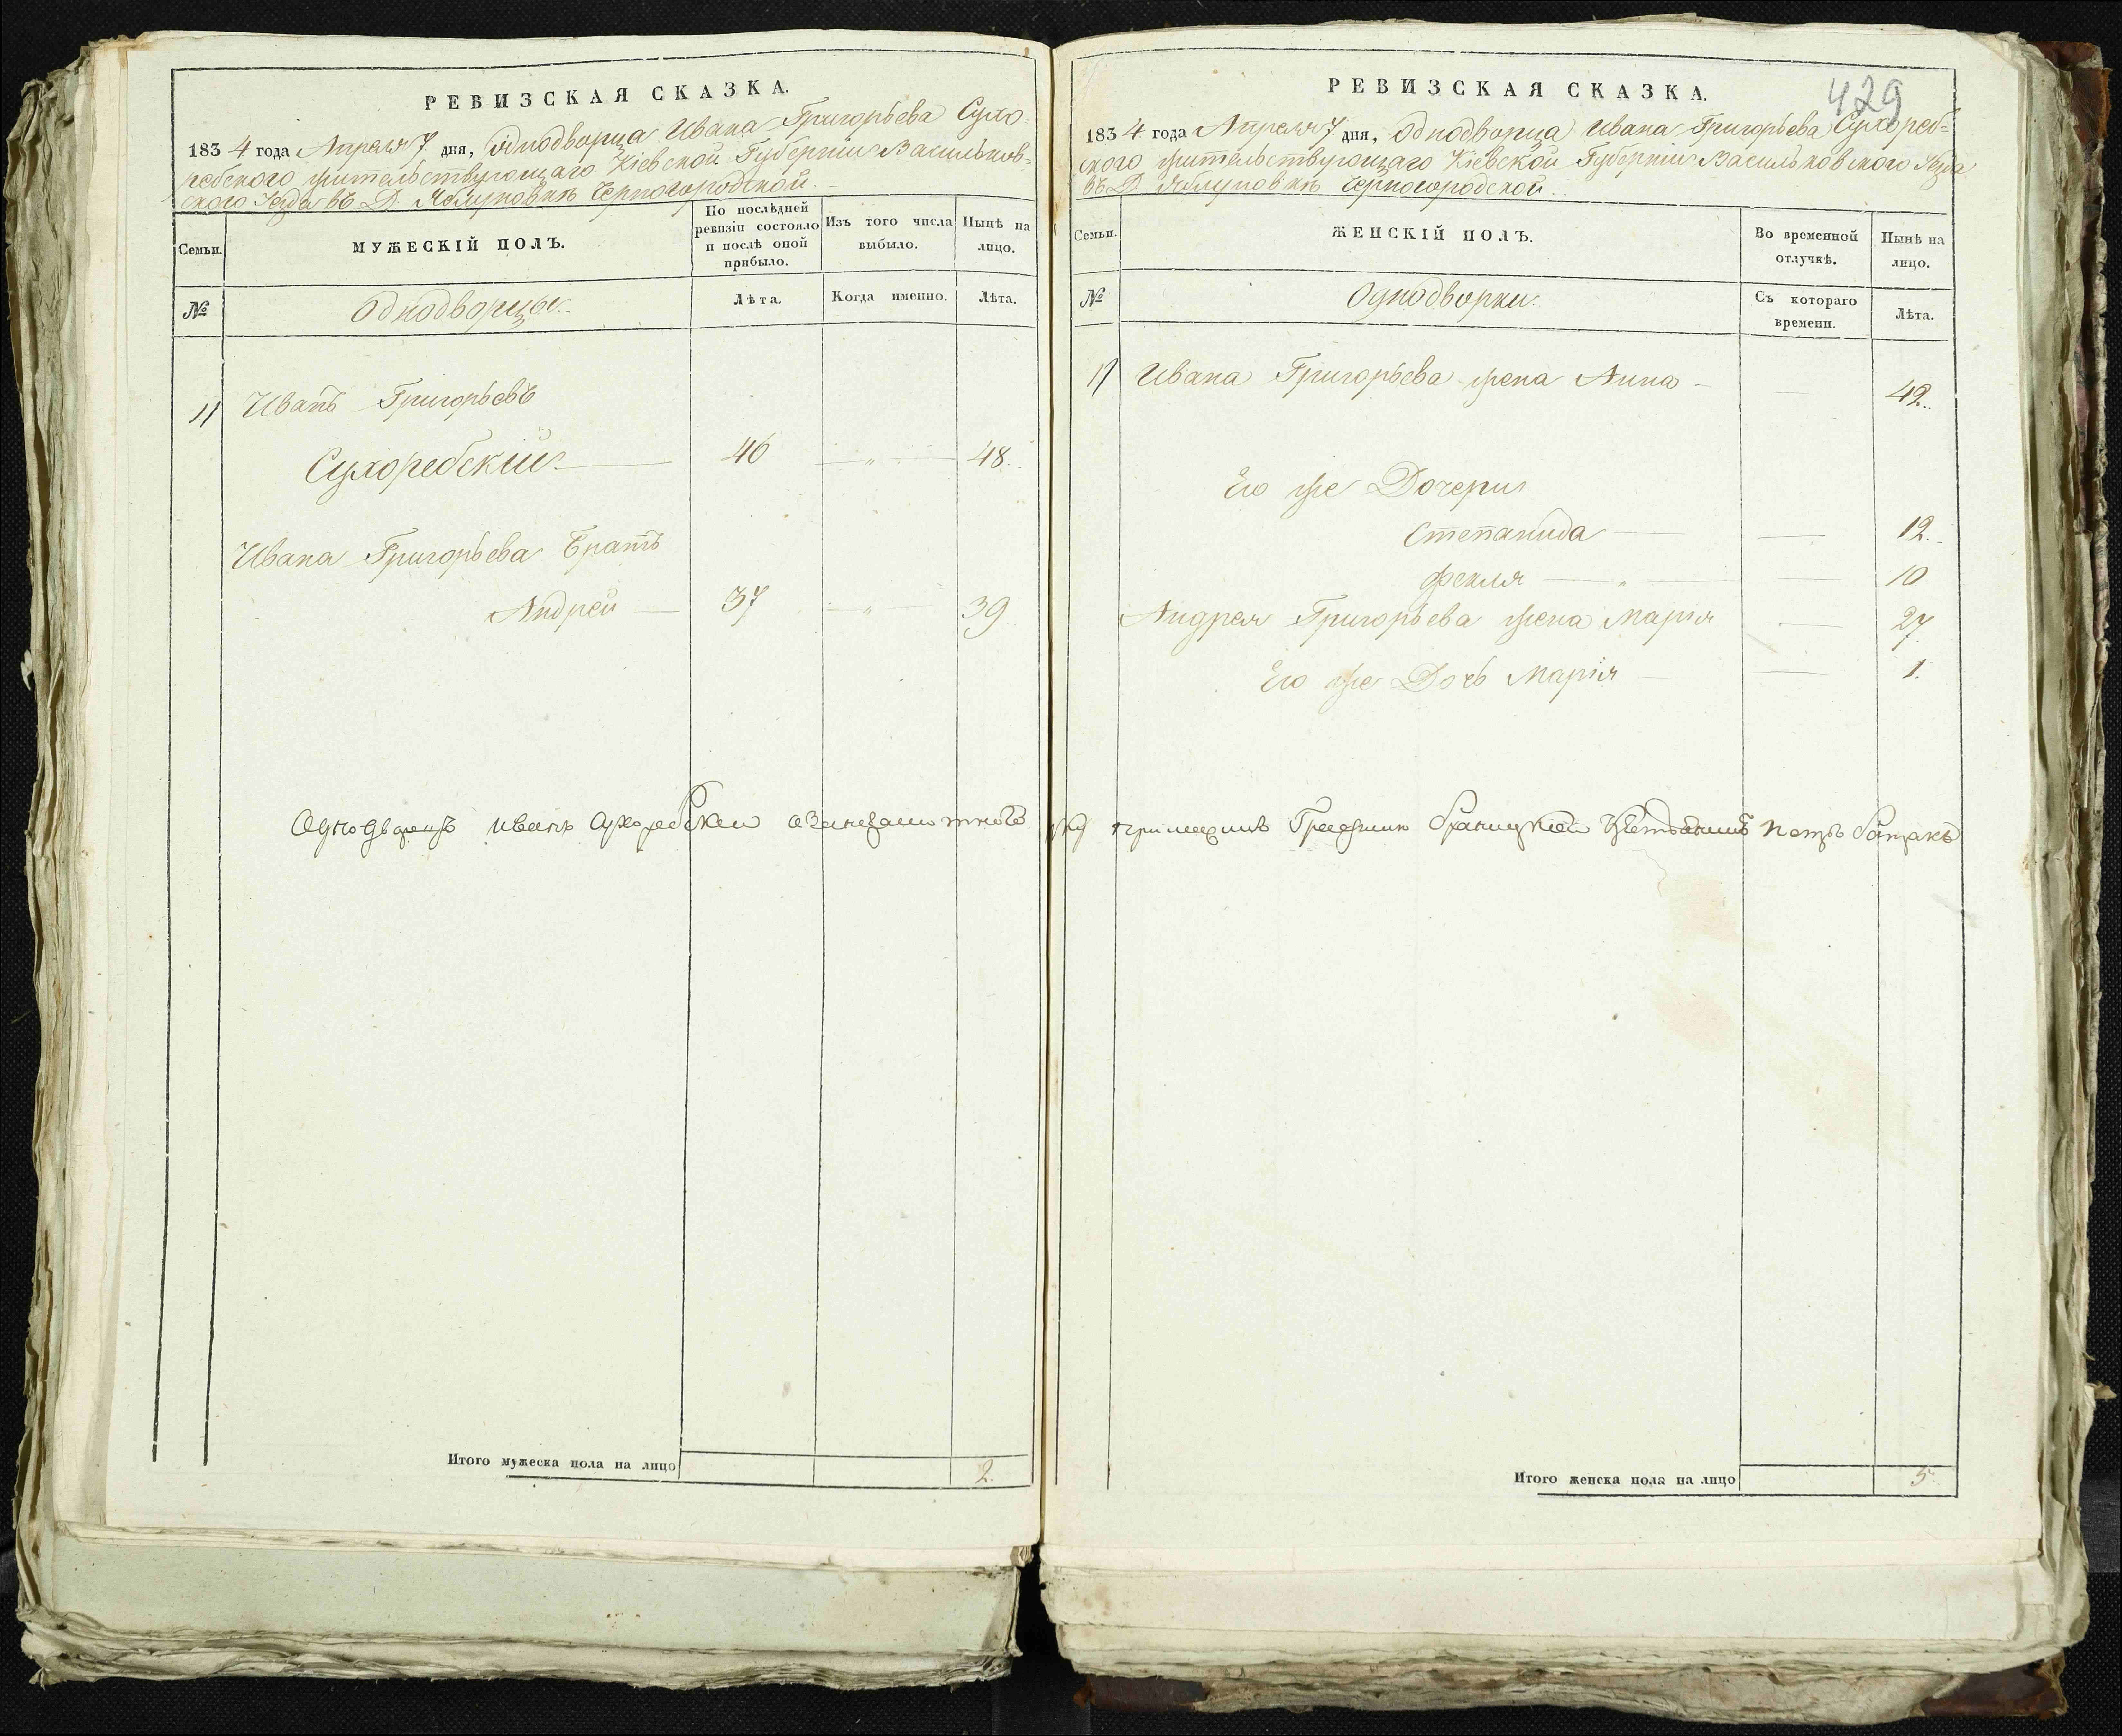 РЕВИЗСКАЯ СКАЗКА.
1834 года Апреля 7 дня, однодворца Ивана Григорьева Сухо-
ребского жительствующаго Кіевской Губерніи Васильков-
ского Уезда въ Д. Яблуновкѣ Черногородской.
Семьи.
МУЖЕСКІЙ ПОЛЪ.
По послѣдней ревизіи состояло и послѣ оной прибыло.
Изъ того числа выбыло.
Нынѣ на лицо.
№
Однодворцы.
Лѣта.
Когда именно.
Лѣта.
11 Иванъ Григорьевъ
Сухоребскій 46 — " — 48.
Ивана Григорьева Братъ
Андрей — 37 — " — 39
Однодворецъ иванъ Сухоребскеи
Итого мужеска пола на лицо 2.
429
РЕВИЗСКАЯ СКАЗКА.
1834 года Апреля 7 дня, однодворца Ивана Григорьева Сухореб-
ского жительствующаго Кіевской Губерніи Васильковского Уезда
въ Д. Яблуновкѣ Черногородской.
Семьи.
ЖЕНСКІЙ ПОЛЪ.
Во временной отлучкѣ.
Нынѣ на лицо.
№
Однодворки.
Съ котораго времени.
Лѣта.
11 Ивана Григорьева жена Анна — — 42.
Его же Дочери
Степанида — — 12.
Фекля — " — — 10
Андрея Григорьева жена Марія — 27.
Его же Дочь Марія — — 1.
Итого женска пола на лицо 5.